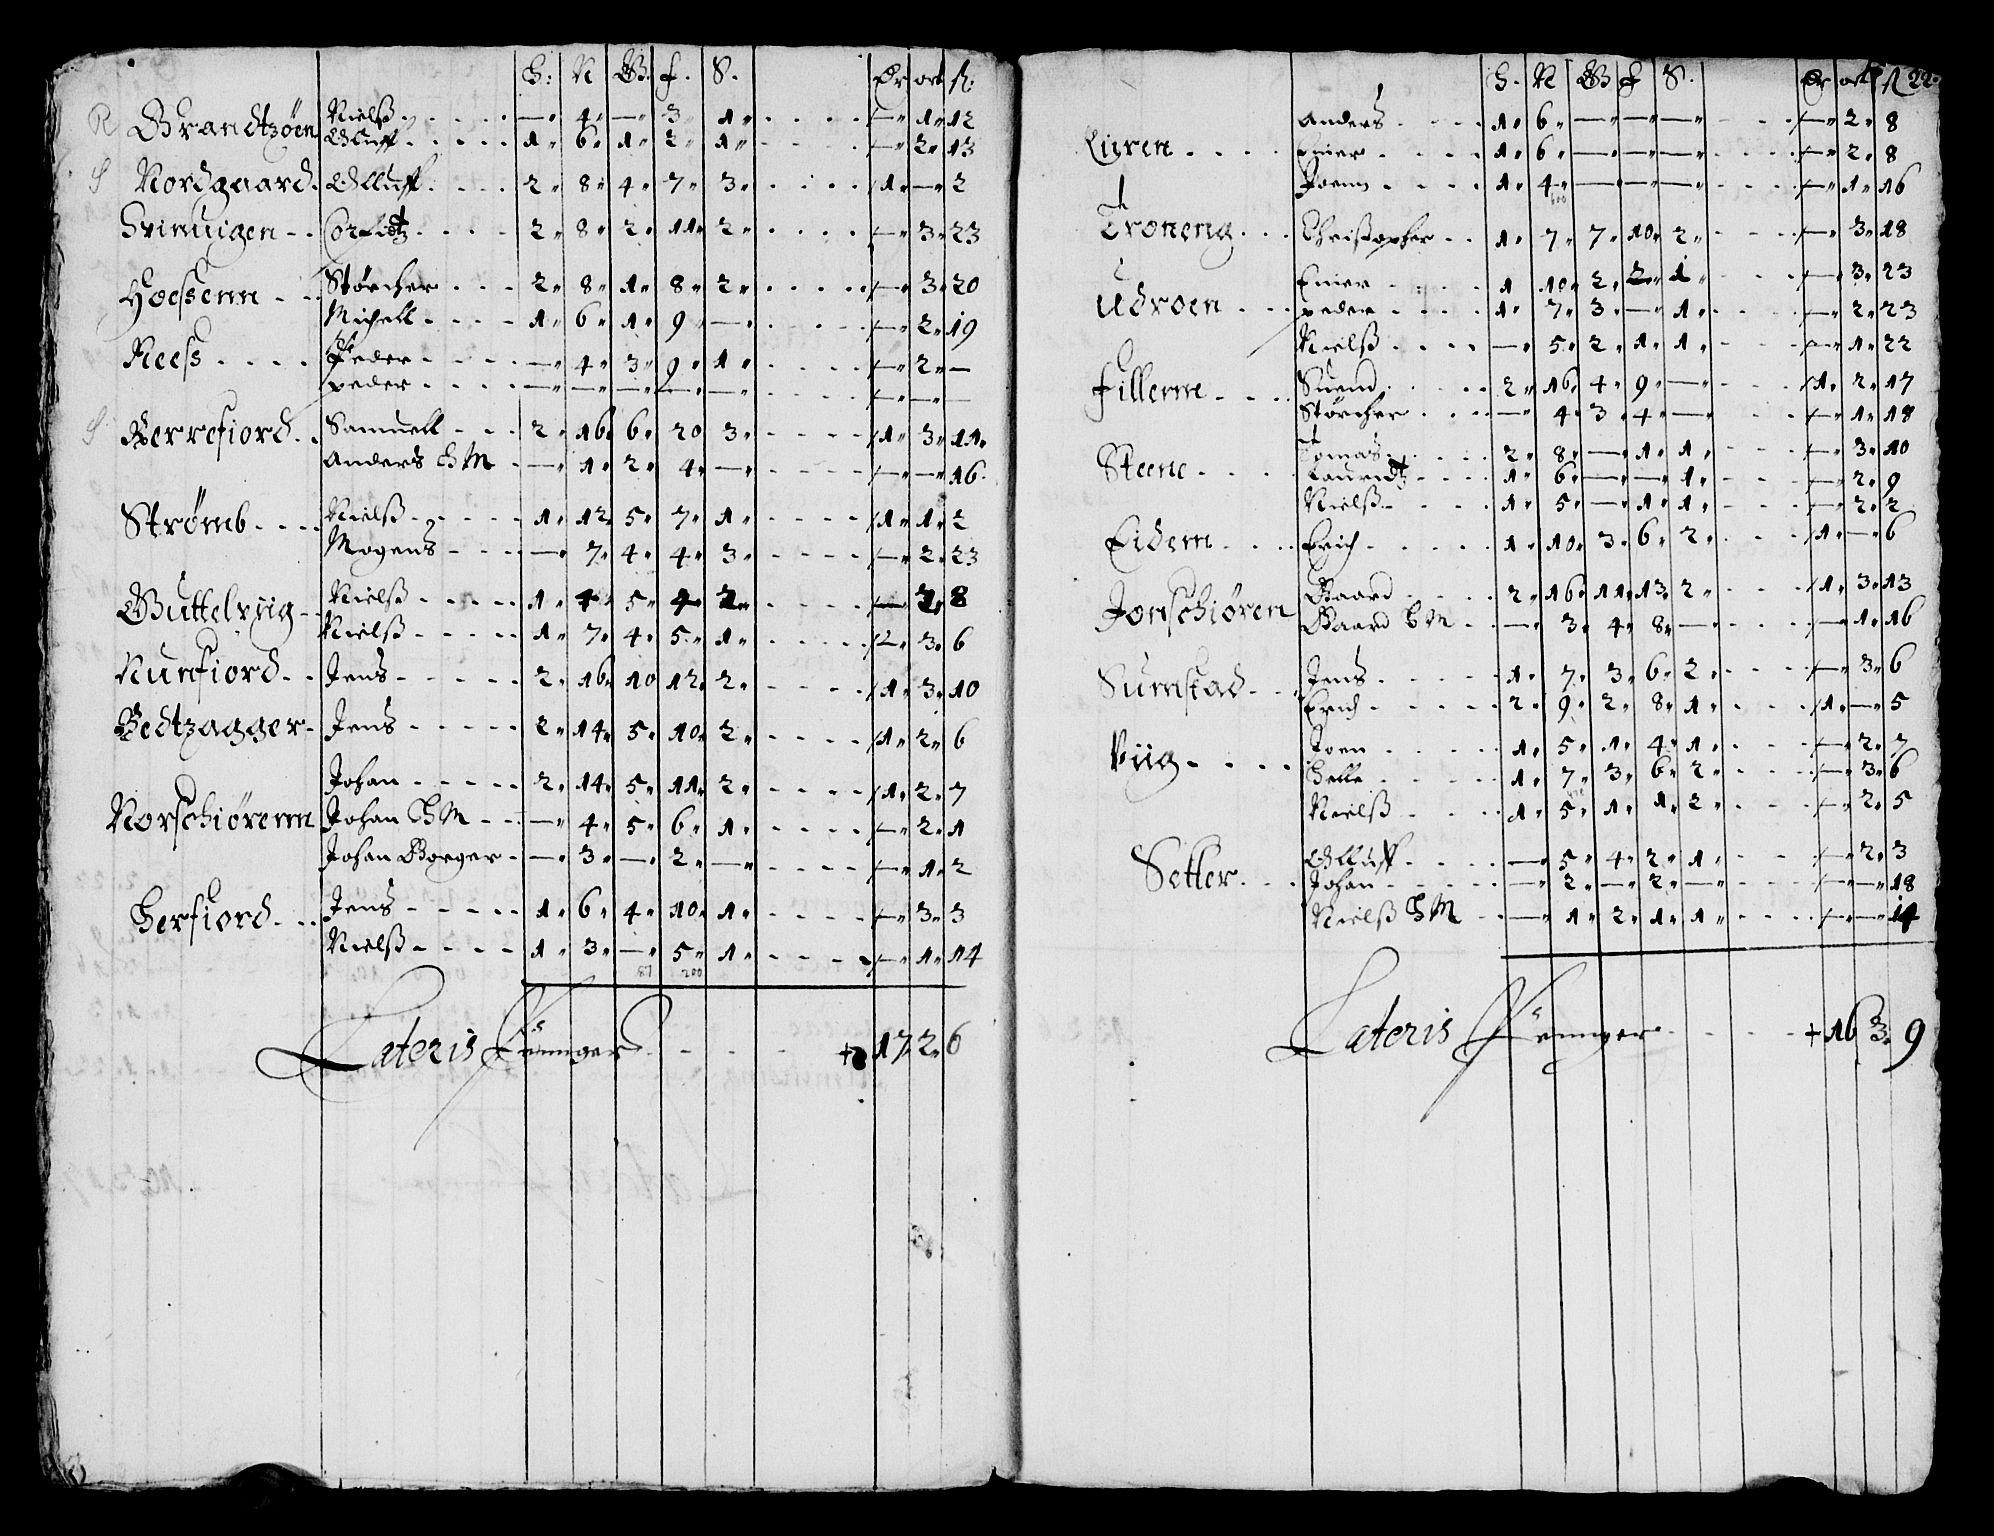 H: N B. f. S. Dr ort ß.
R Brandtzöen Nielß — 4 — 3 1 — 1 12
Olluff 1 6 1 2 1 — 2 13
S Nordgaard Olluff 2 8 4 7 3 1 — 2
Hvinuigen Corfidtz 2 8 2 11 2 — 3 23
Hoessenn Størcher 2 8 1 8 2 — 3 20
Michell 1 6 1 9 — — 2 19
Reess Peder — 4 3 9 1 — 2 —
peder — — — — — — — —
S Berrefiord Samuell 2 16 6 20 3 1 3 11
Anders HM — 1 2 4 — — — 16
Strømb Nielß 1 12 5 7 1 1 1 2
Mogens — 7 4 4 3 — 2 23
Buttelviig Nielß 1 4 5 4 2 — 2 8
Nielß 1 7 4 5 1 2 3 6
Nunfiord Jens 2 16 10 12 2 1 3 10
Bedtzagger Jens 2 14 5 10 2 1 2 6
Johan 2 14 5 11 2 1 2 7
Norschiørenn Johan HM — 4 5 6 1 — 2 1
Johan Borger — 3 — 2 — — 1 2
Herfiord Jens 1 6 4 10 1 — 3 3
Nielß 1 3 — 5 1 — 1 14
87 200
Lateris Penge 17 2 6
H. N B f S. Dr ort ß 22
Anders 1 6 — — — — 2 8
Liuren Einer 1 6 — — — — 2 8
Joenn 1 4 — — — — 1 16
Troneng Christopher 1 7 7 10 2 — 3 18
Einer 1 10 2 2 1 — 3 23
Udroen peder 1 7 3 — 1 — 2 23
Nielß — 5 2 1 1 — 1 22
Fillenn Suend 2 16 4 9 — 1 2 17
Størcher — 4 3 4 — — 1 18
Tomas 2 8 — 1 1 — 3 10
Steene Lauridtz 1 6 — — 1 — 2 9
Nielß 1 5 — 1 1 — 2 2
Eidem Erich 1 10 3 6 2 1 — 6
Baard 2 16 11 13 2 1 3 13
Jonschiøren Baard HM — 3 4 8 — — 1 16
Sumstad Jens 1 7 3 6 2 — 3 6
Erich 2 9 2 8 1 1 — 5
Viig Joen 1 5 1 4 1 — 2 7
Helle 1 7 3 6 2 — 3 6
Nielß 1 5 1 1 2 — 2 5
Olluff — 5 4 2 1 — 2 3
Setter Johan — 2 — 2 — — — 18
Nielß HM — 1 2 1 1 — — 14
Lateris Penge + 16 3 9